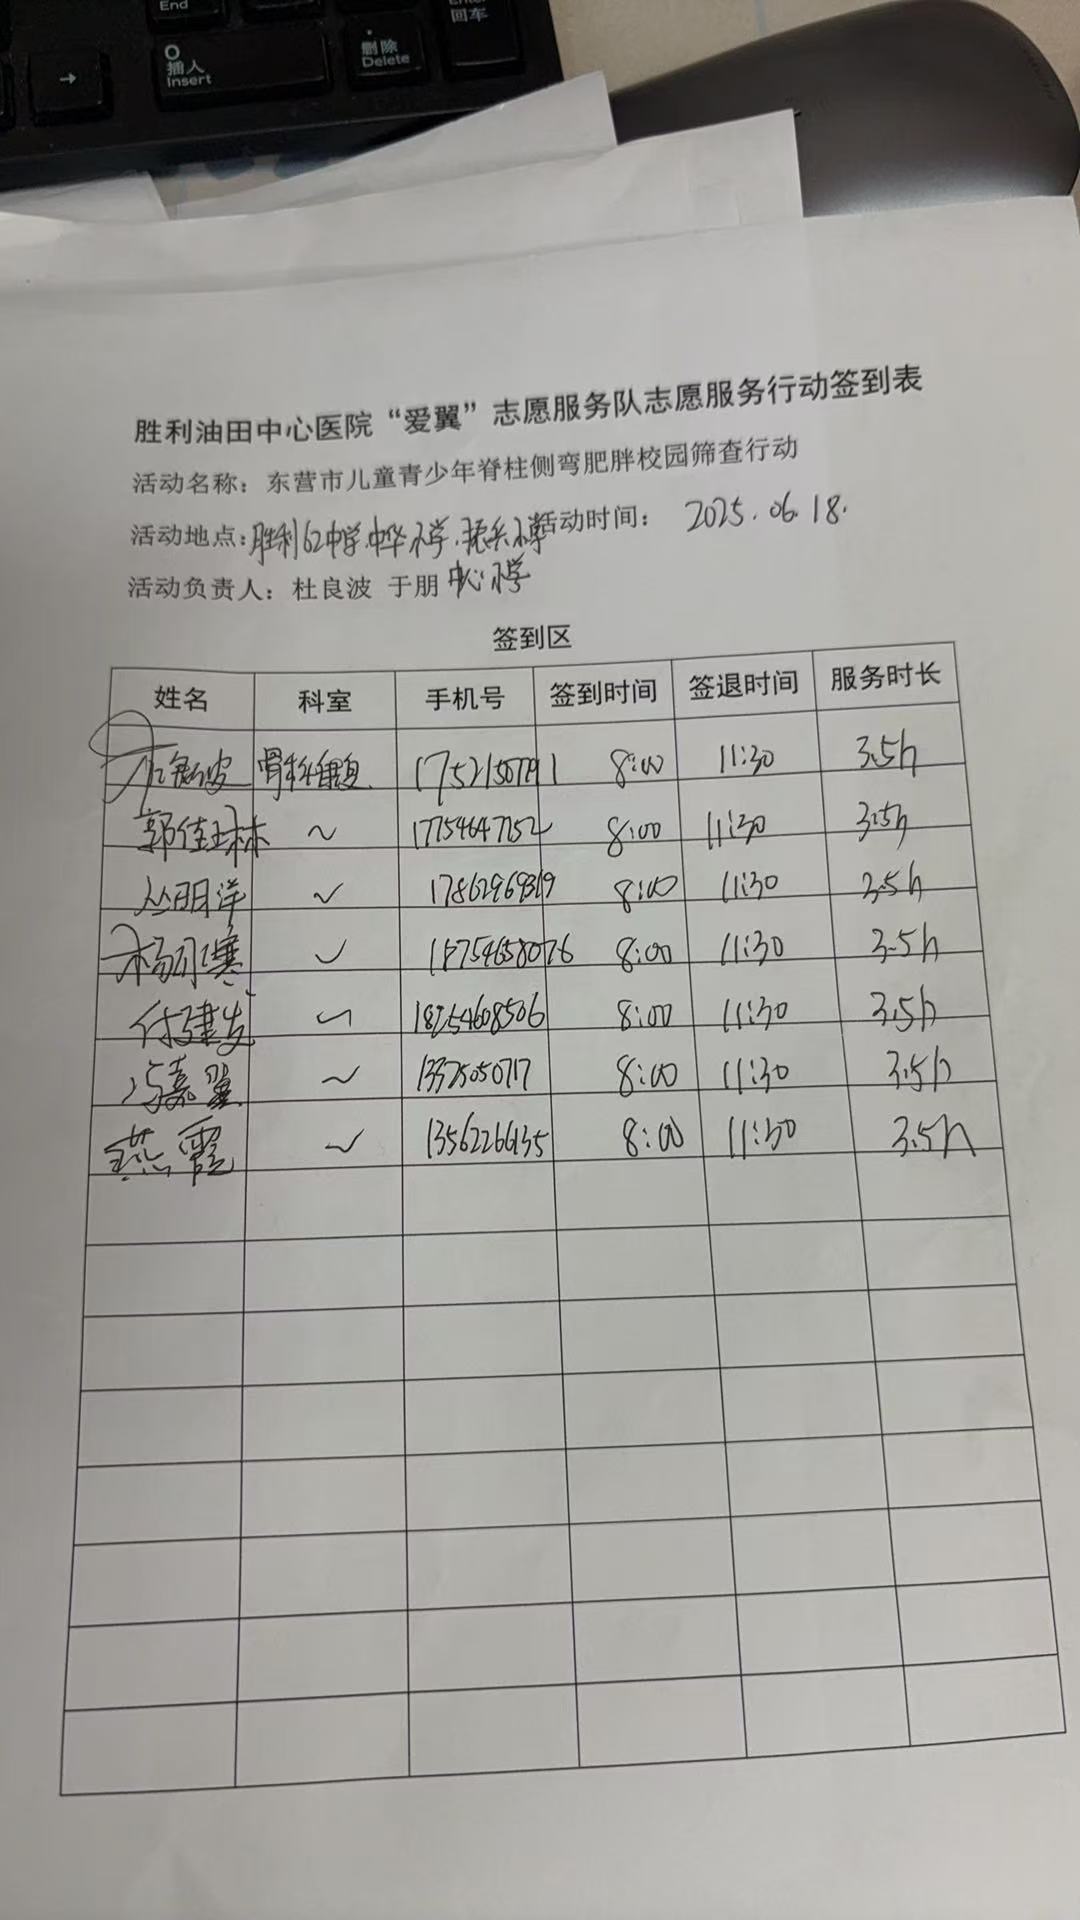 End
Enter
回车
→
插入
Insert
删除
Delete
胜利油田中心医院“爱翼”志愿服务队志愿服务行动签到表
活动名称：东营市儿童青少年脊柱侧弯肥胖校园筛查行动
活动地点：胜利62中学.中华小学.振兴小学 活动时间： 2025.06.18.
活动负责人：杜良波 于朋 中心小学
签到区
姓名 科室 手机号 签到时间 签退时间 服务时长
骨科 8:00 11:30 3.5h
郭佳琳 〜 17754647152 8:00 11:30 3.5h
丛明洋 8:00 11:30 3.5h
杨 8:00 11:30 3.5h
付建发 18254608506 8:00 11:30 3.5h
冯嘉翼 〜 13325050717 8:00 11:30 3.5h
燕霞 〜 13562266135 8:00 11:30 3.5h